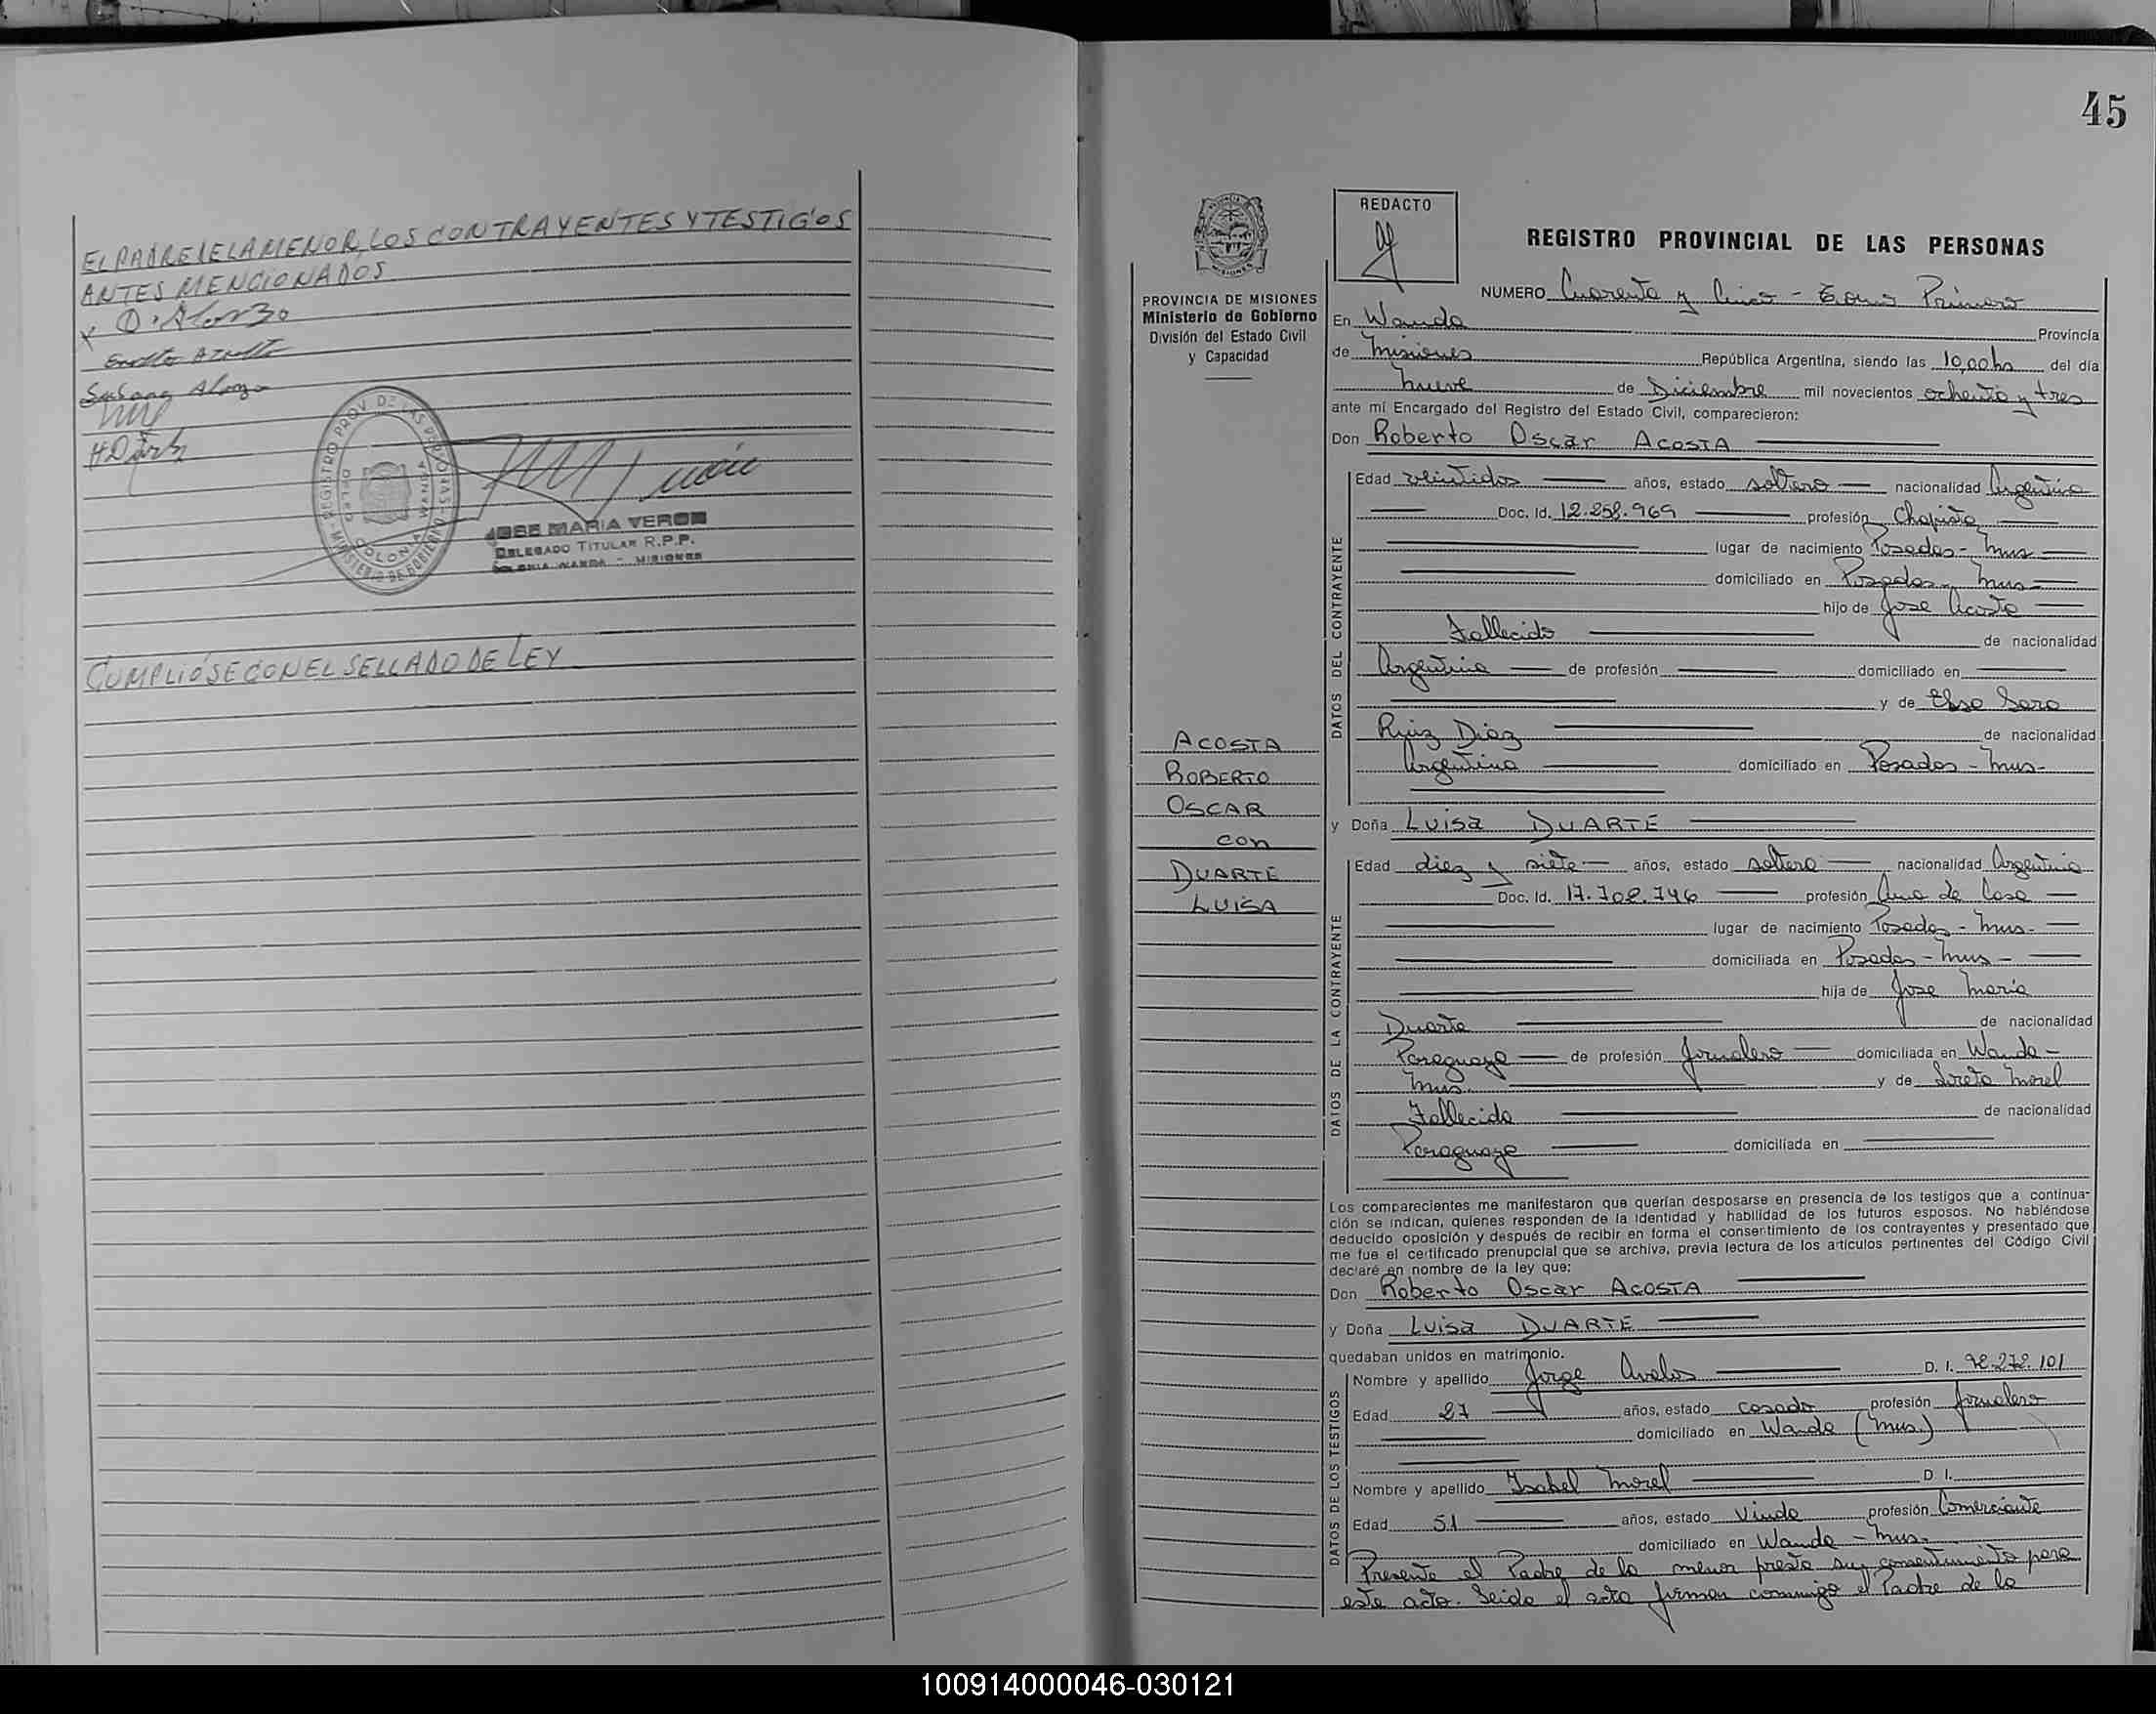 EL PADRE DE LA MENOR, LOS CONTRAYENTES Y TESTIGOS
ANTES MENCIONADOS
Susana Alonzo
REGISTRO PROV. DE LAS PERSONAS
MINISTERIO DE GOBIERNO
COLONIA WANDA
JOSE MARIA VERON
DELEGADO TITULAR R.P.P.
COLONIA WANDA - MISIONES
CUMPLIÓSE CON EL SELLADO DE LEY
45
PROVINCIA DE MISIONES
Ministerio de Gobierno
División del Estado Civil
y Capacidad
ACOSTA
ROBERTO
OSCAR
con
DUARTE
LUISA
REDACTO
REGISTRO PROVINCIAL DE LAS PERSONAS
NUMERO Cuarenta y Cinco - Tomo Primero
En Wanda Provincia
de Misiones República Argentina, siendo las 10,00 hs del día
nueve de Diciembre mil novecientos ochenta y tres
ante mí Encargado del Registro del Estado Civil, comparecieron:
Don Roberto Oscar ACOSTA
DATOS DEL CONTRAYENTE
Edad veintidos años, estado soltero nacionalidad Argentina
Doc. Id. 12.258.969 profesión Chapista
lugar de nacimiento Posadas - Mnes
domiciliado en Posadas - Mnes
hijo de Jose Acosta
Fallecido de nacionalidad
Argentina de profesión domiciliado en
y de Elsa Sara
Ruiz Diaz de nacionalidad
Argentina domiciliado en Posadas - Mnes -
y Doña Luisa DUARTE
DATOS DE LA CONTRAYENTE
Edad diez y siete años, estado soltera nacionalidad Argentina
Doc. Id. 17.702.746 profesión Ama de Casa
lugar de nacimiento Posadas - Mnes -
domiciliada en Posadas - Mnes -
hija de Jose Maria
Duarte de nacionalidad
Paraguaya de profesión Jornalero domiciliada en Wanda -
Mnes. y de Loreta Morel
Fallecida de nacionalidad
Paraguaya domiciliada en
Los comparecientes me manifestaron que querían desposarse en presencia de los testigos que a continua-
ción se indican, quienes responden de la identidad y habilidad de los futuros esposos. No habiéndose
deducido oposición y después de recibir en forma el consentimiento de los contrayentes y presentado que
me fue el certificado prenupcial que se archiva, previa lectura de los artículos pertinentes del Código Civil
declaré en nombre de la ley que:
Don Roberto Oscar ACOSTA
y Doña Luisa DUARTE
quedaban unidos en matrimonio.
DATOS DE LOS TESTIGOS
Nombre y apellido Jorge Avalos D. I. 92.272.101
Edad 27 años, estado casado profesión Jornalero
domiciliado en Wanda (Mnes.)
Nombre y apellido Isabel Morel D I.
Edad 51 años, estado Viuda profesión Comerciante
domiciliado en Wanda - Mnes.
Presente el Padre de la menor presta su consentimiento para
este acto. Leida el acta firman conmigo el Padre de la
100914000046-030121